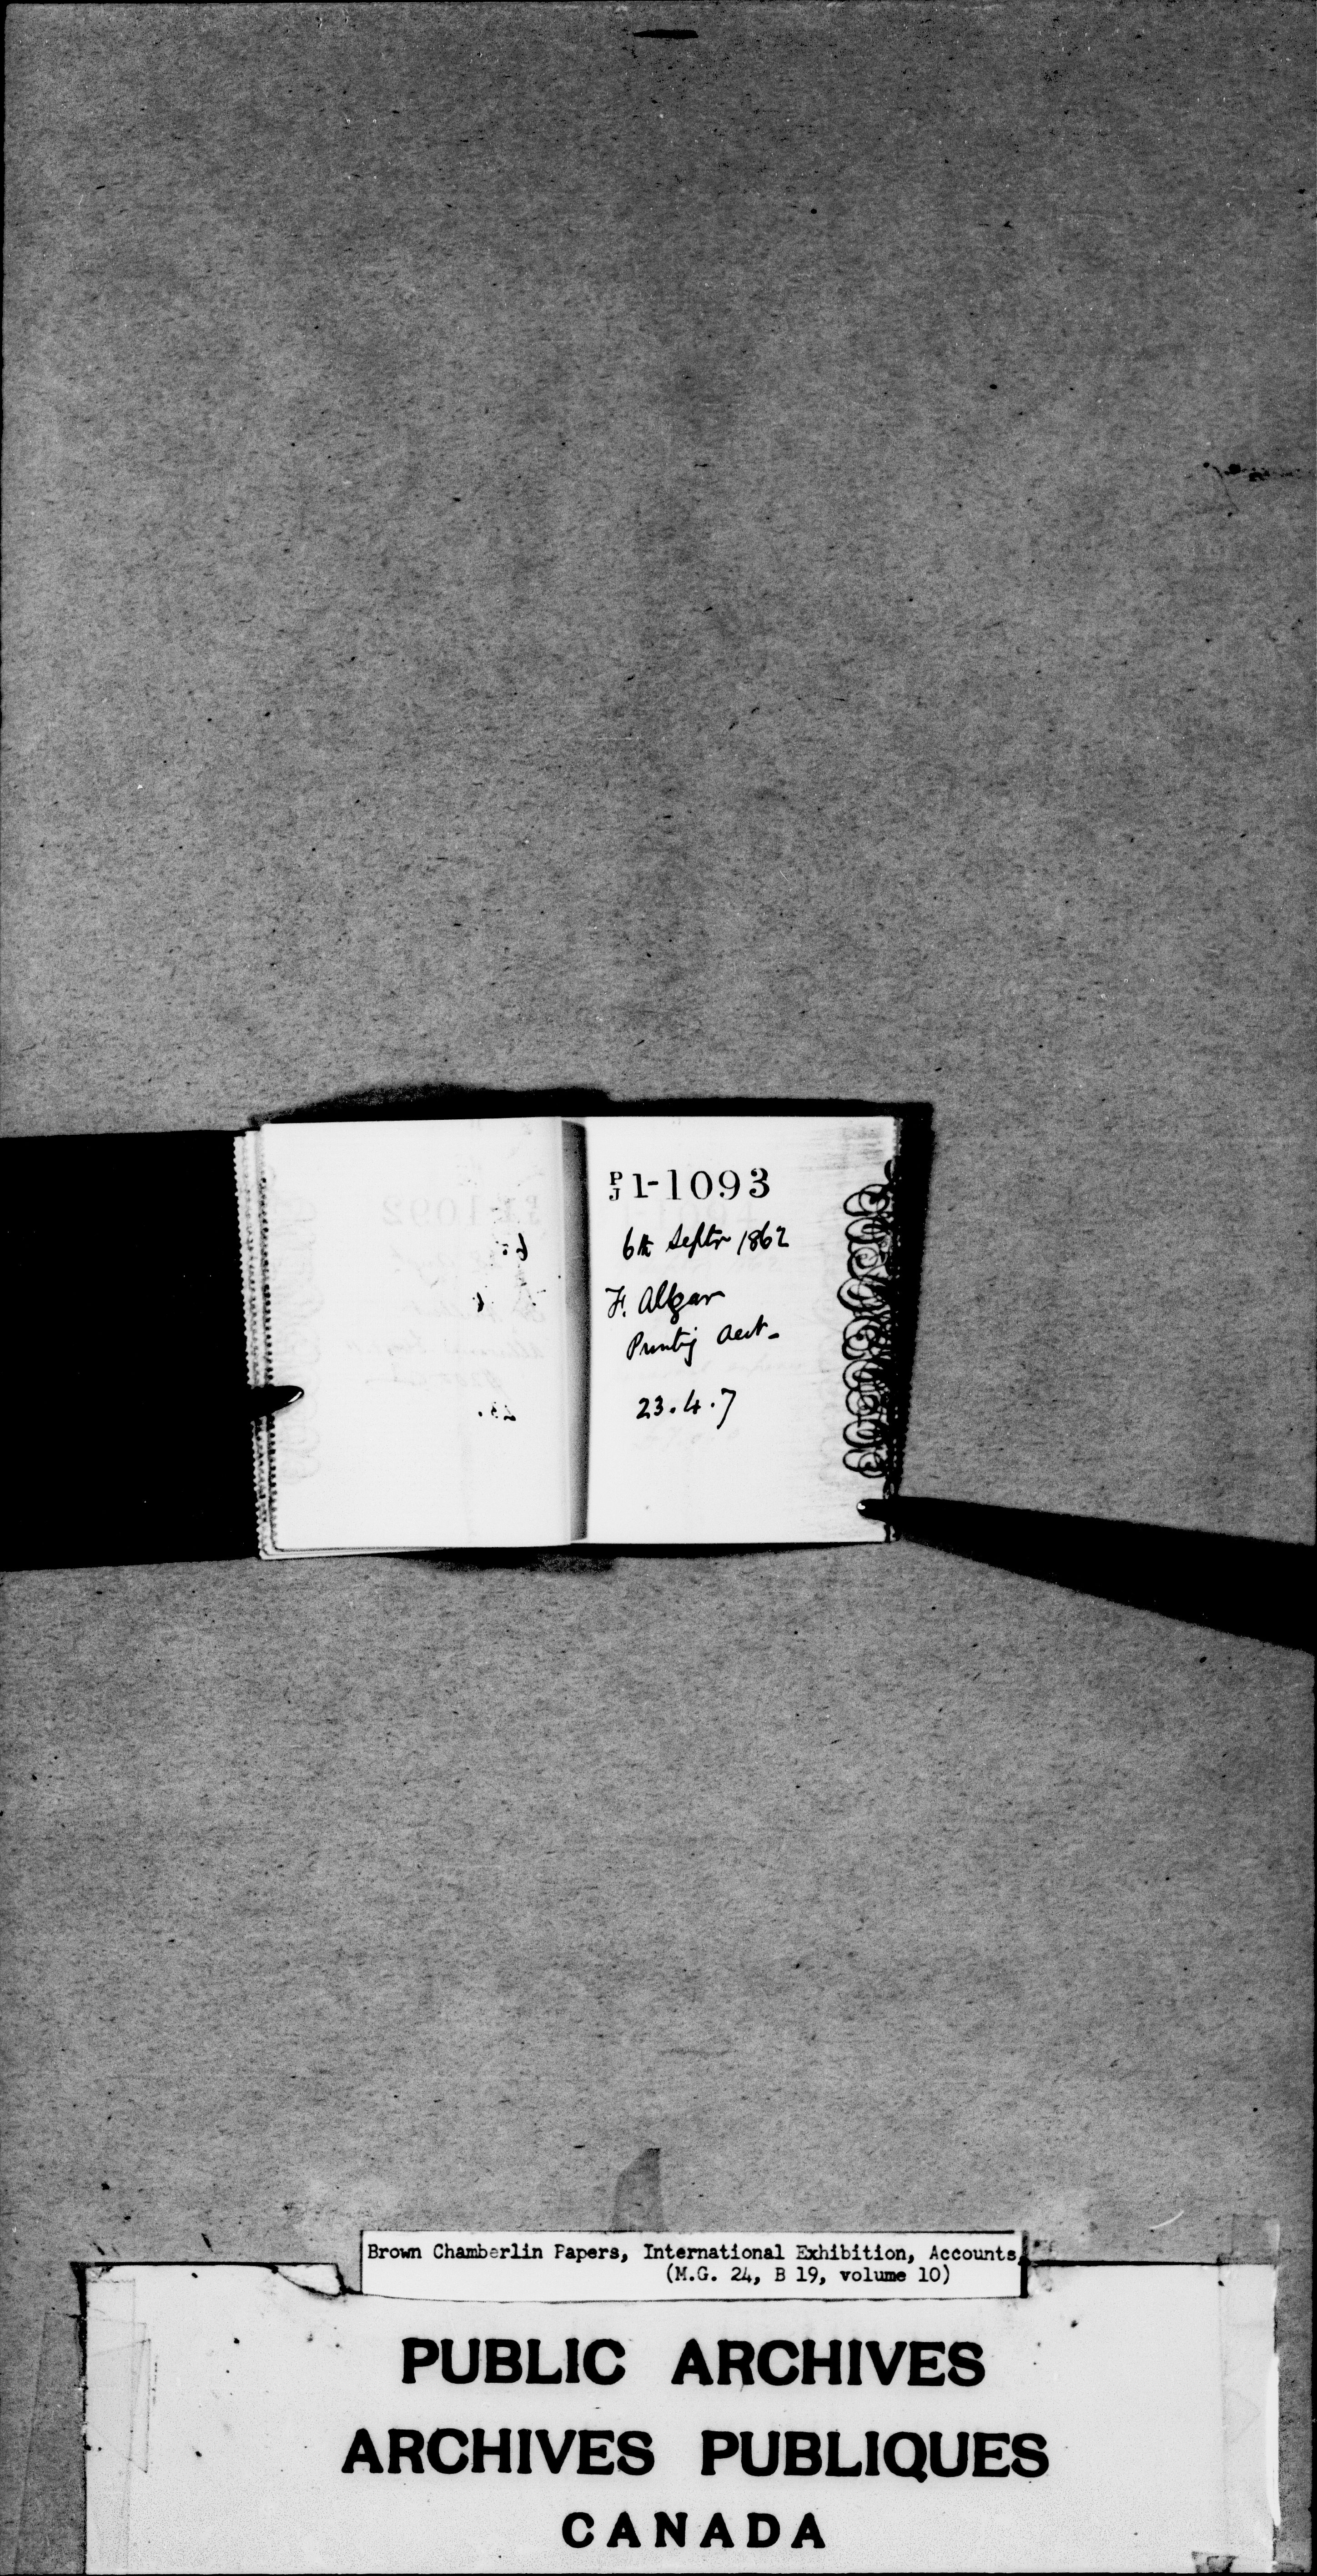 P/J 1-1093
6th Septr 1862
F. Algar
Printg acct-
23.4.7
Brown Chamberlin Papers, International Exhibition, Accounts
(M.G. 24, B 19, volume 10)
PUBLIC ARCHIVES
ARCHIVES PUBLIQUES
CANADA